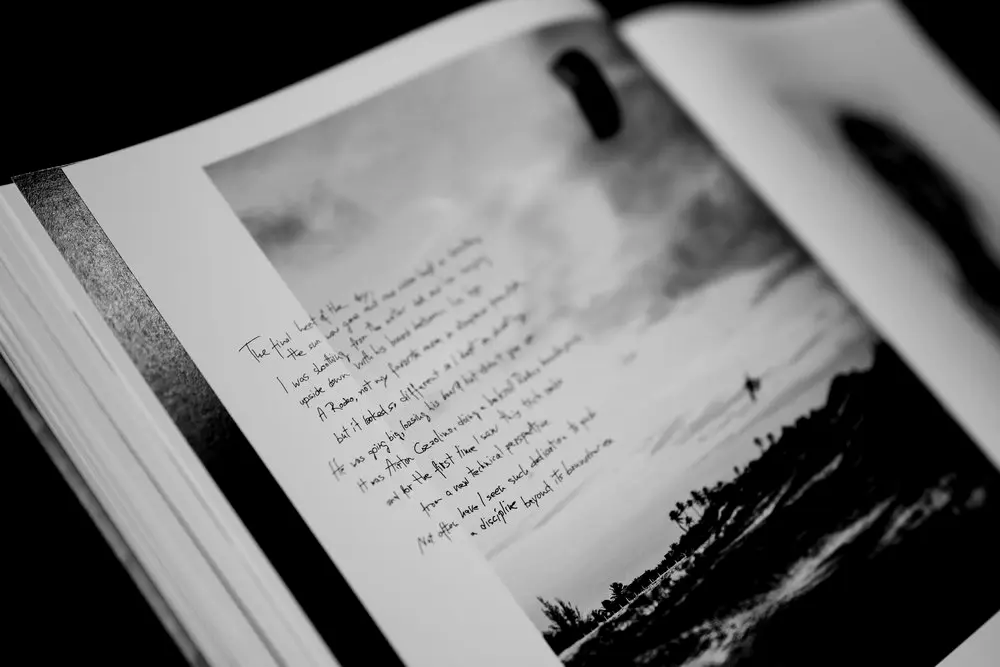 The final heat of the day,
the sun was gone and one rider half a
I was shooting from the water and saw him
upside down with his board between his legs
A Rodeo, not my favorite move, a sloppier
but it looked so different as I kept on shooting
He was going big, tossing his board but didn't
It was Airton Cozzolino, doing a backroll
and for the first time I saw this trick
from a new technical perspective
Not often have I seen such dedication to push
a discipline beyond its boundaries